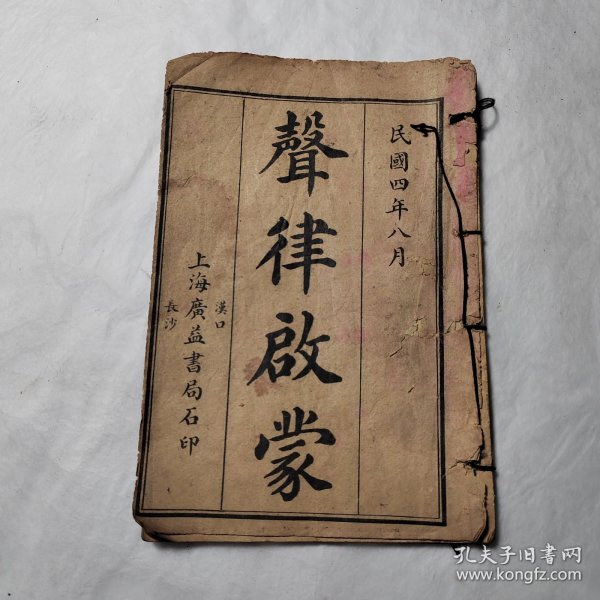 民國四年八月
聲律啟蒙
漢口
上海廣益書局石印
長沙
孔夫子旧书网
www.kongfz.com